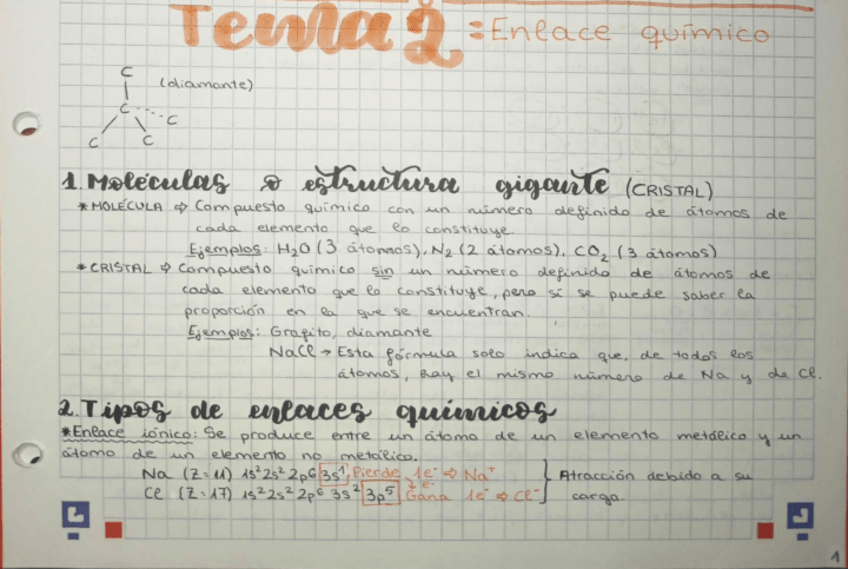 Tema 2 = Enlace químico
C
(diamante)
C
C
C
C
1. Moléculas o estructura gigante (CRISTAL)
* MOLÉCULA ⇒ Compuesto químico con un número definido de átomos de
cada elemento que lo constituye.
Ejemplos: H₂O (3 átomos), N₂ (2 átomos), CO₂ (3 átomos)
* CRISTAL ⇒ Compuesto químico sin un número definido de átomos de
cada elemento que lo constituye, pero sí se puede saber la
proporción en la que se encuentran.
Ejemplos: Grafito, diamante
NaCl → Esta fórmula solo indica que, de todos los
átomos, hay el mismo número de Na y de Cl.
2. Tipos de enlaces químicos
* Enlace iónico: Se produce entre un átomo de un elemento metálico y un
átomo de un elemento no metálico.
Na (Z=11) 1s² 2s² 2p⁶ 3s¹, Pierde 1e⁻ ⇒ Na⁺
Cl (Z=17) 1s² 2s² 2p⁶ 3s² 3p⁵ Gana 1e⁻ ⇒ Cl⁻
Atracción debido a su
carga.
1